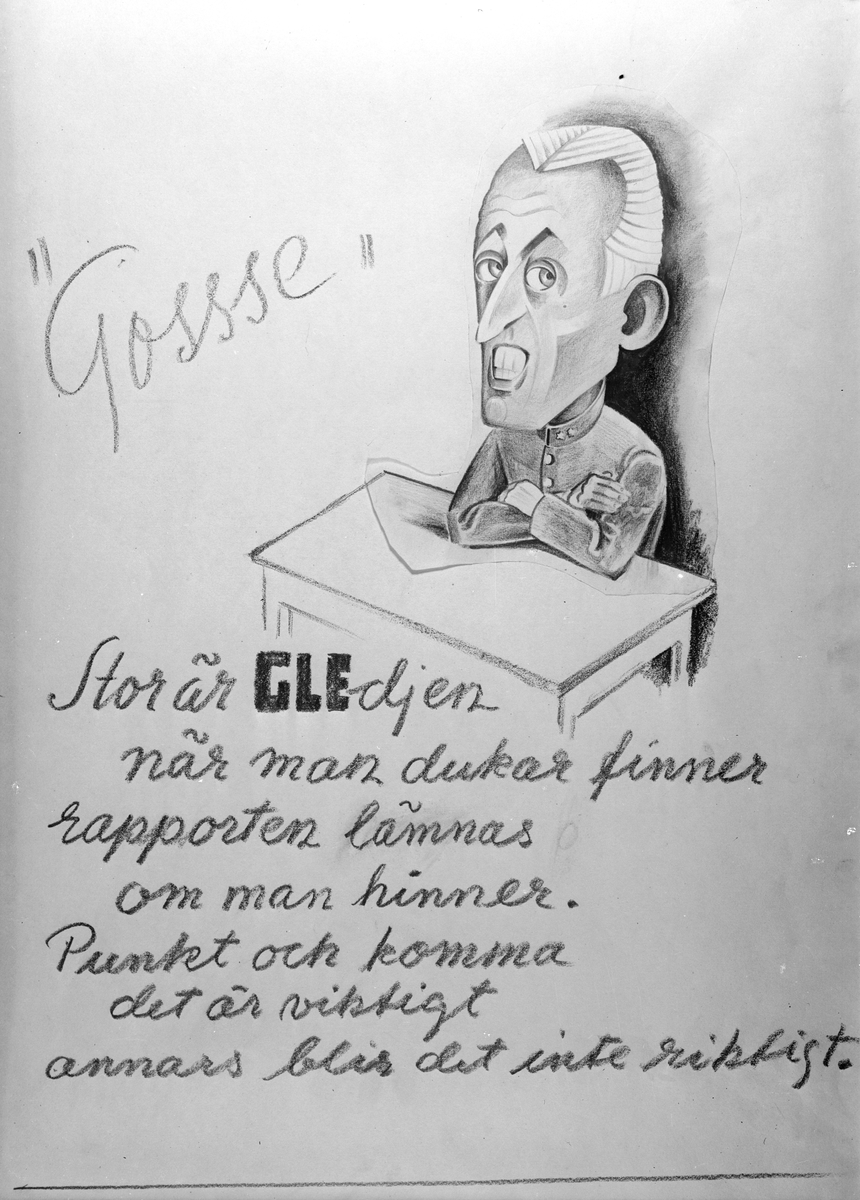 "Gossse"
Stor är GLEdjen
när man dukar finner
rapporten lämnas
om man hinner.
Punkt och komma
det är viktigt
annars blir det inte riktigt.